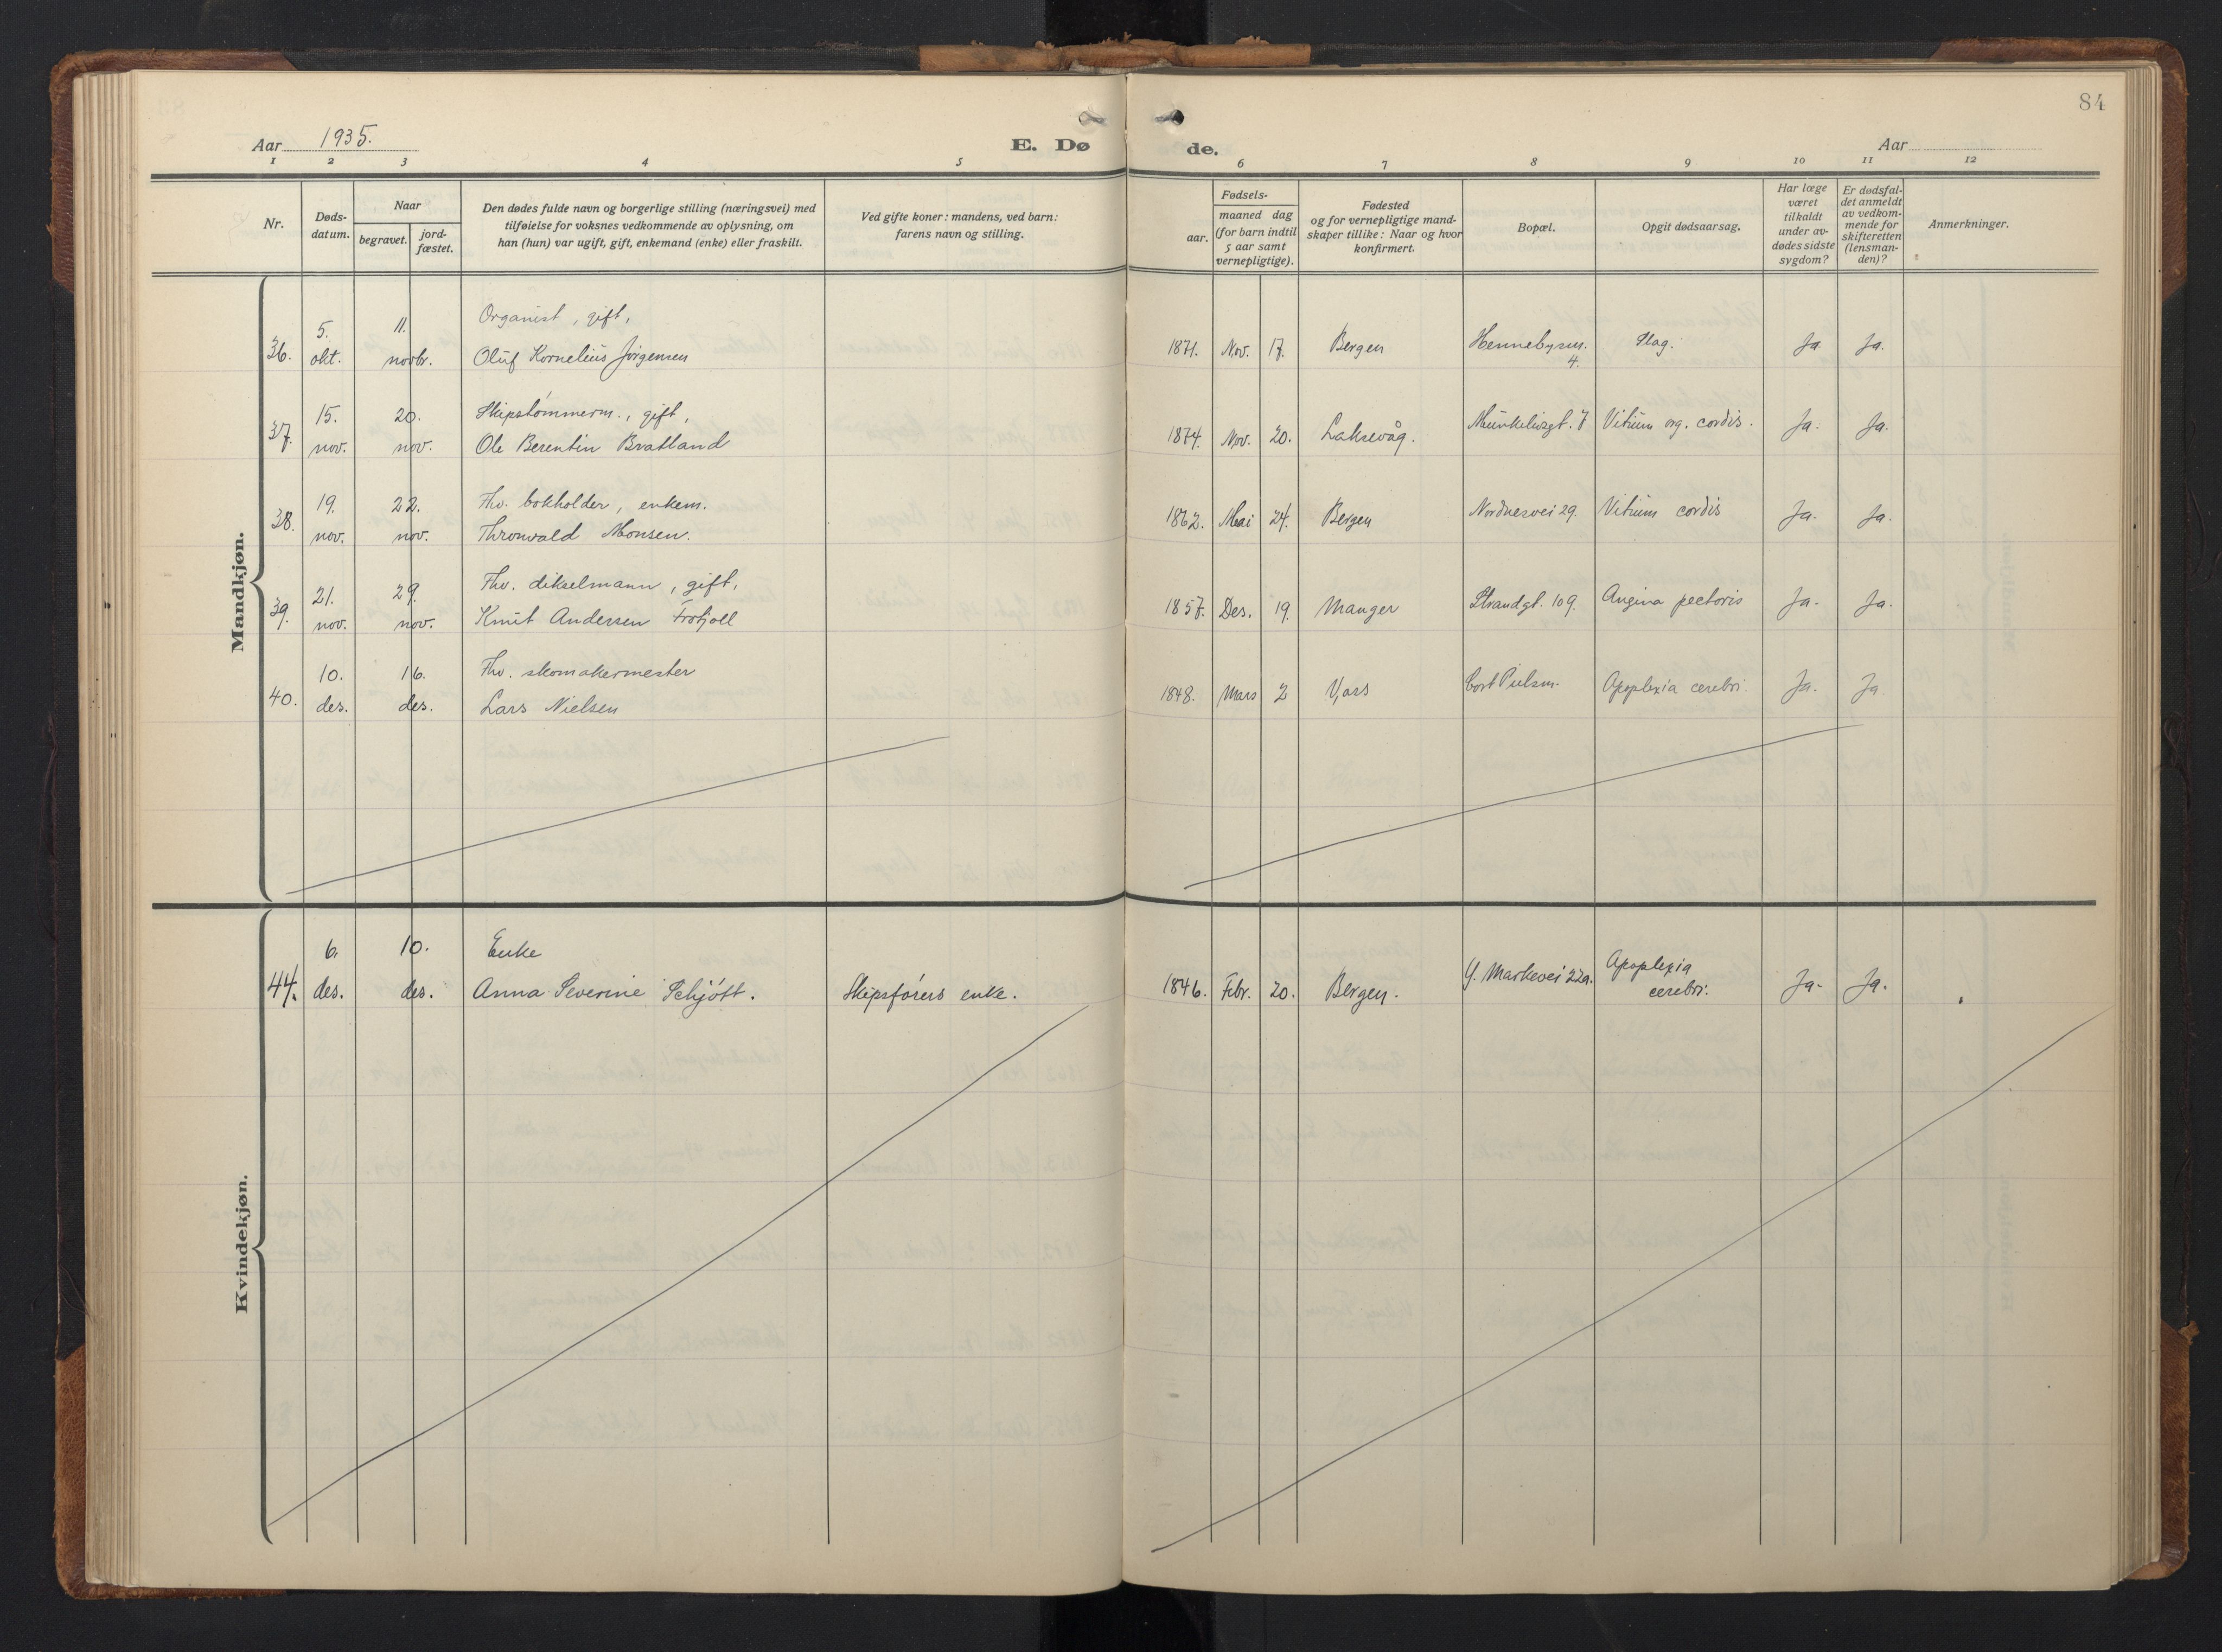 84
Aar 1935.
E. Dø de.
Aar
1 2 3 4 5 6 7 8 9 10 11 12
Nr.
Døds-
datum.
Naar
begravet.
jord-
fæstet.
Den dødes fulde navn og borgerlige stilling (næringsvei) med
tilføielse for voksnes vedkommende av oplysning, om
han (hun) var ugift, gift, enkemand (enke) eller fraskilt.
Ved gifte koner: mandens, ved barn:
farens navn og stilling.
Fødsels-
aar.
maaned dag
(for barn indtil
5 aar samt
vernepligtige).
Fødested
og for vernepligtige mand-
skaper tillike: Naar og hvor
konfirmert.
Bopæl.
Opgit dødsaarsag.
Har læge
været
tilkaldt
under av-
dødes sidste
sygdom?
Er dødsfal-
det anmeldt
av vedkom-
mende for
skifteretten
(lensman-
den)?
Anmerkninger.
Mandkjøn.
5. 11. Organist, gift,
36. okt. novbr. Oluf Kornelius Jørgensen 1871. Nov. 17. Bergen Hennebysm. 4. Slag. Ja Ja.
15. 20. Skipstømmerm., gift,
37. nov. nov. Ole Berentin Bratland 1874. Nov. 20. Laksevåg. Munkelivsgt. 7 Vitium org. cordis. Ja. Ja.
19. 22. Fhv. bokholder, enkem.
38. nov. nov. Thronvald Monsen. 1862. Mai 24. Bergen Nordnesvei 29. Vitium cordis Ja. Ja.
21. 29. Fhv. dikselmann, gift,
39. nov. nov. Knut Andersen 1857. Des. 19. Manger Strandgt. 109. Angina pectoris Ja. Ja.
10. 16. Fhv. skomakermester
40. des. des. Lars Nielsen 1848. Mars 2 Voss Cort Pielsm. Apoplexia cerebri Ja. Ja.
Kvindekjøn.
6. 10. Enke
44. des. des. Anna Severine Schjøtt. Skipsførers enke. 1846. Febr. 20. Bergen. Y. Markevei 22a. Apoplexia
cerebri. Ja. Ja.